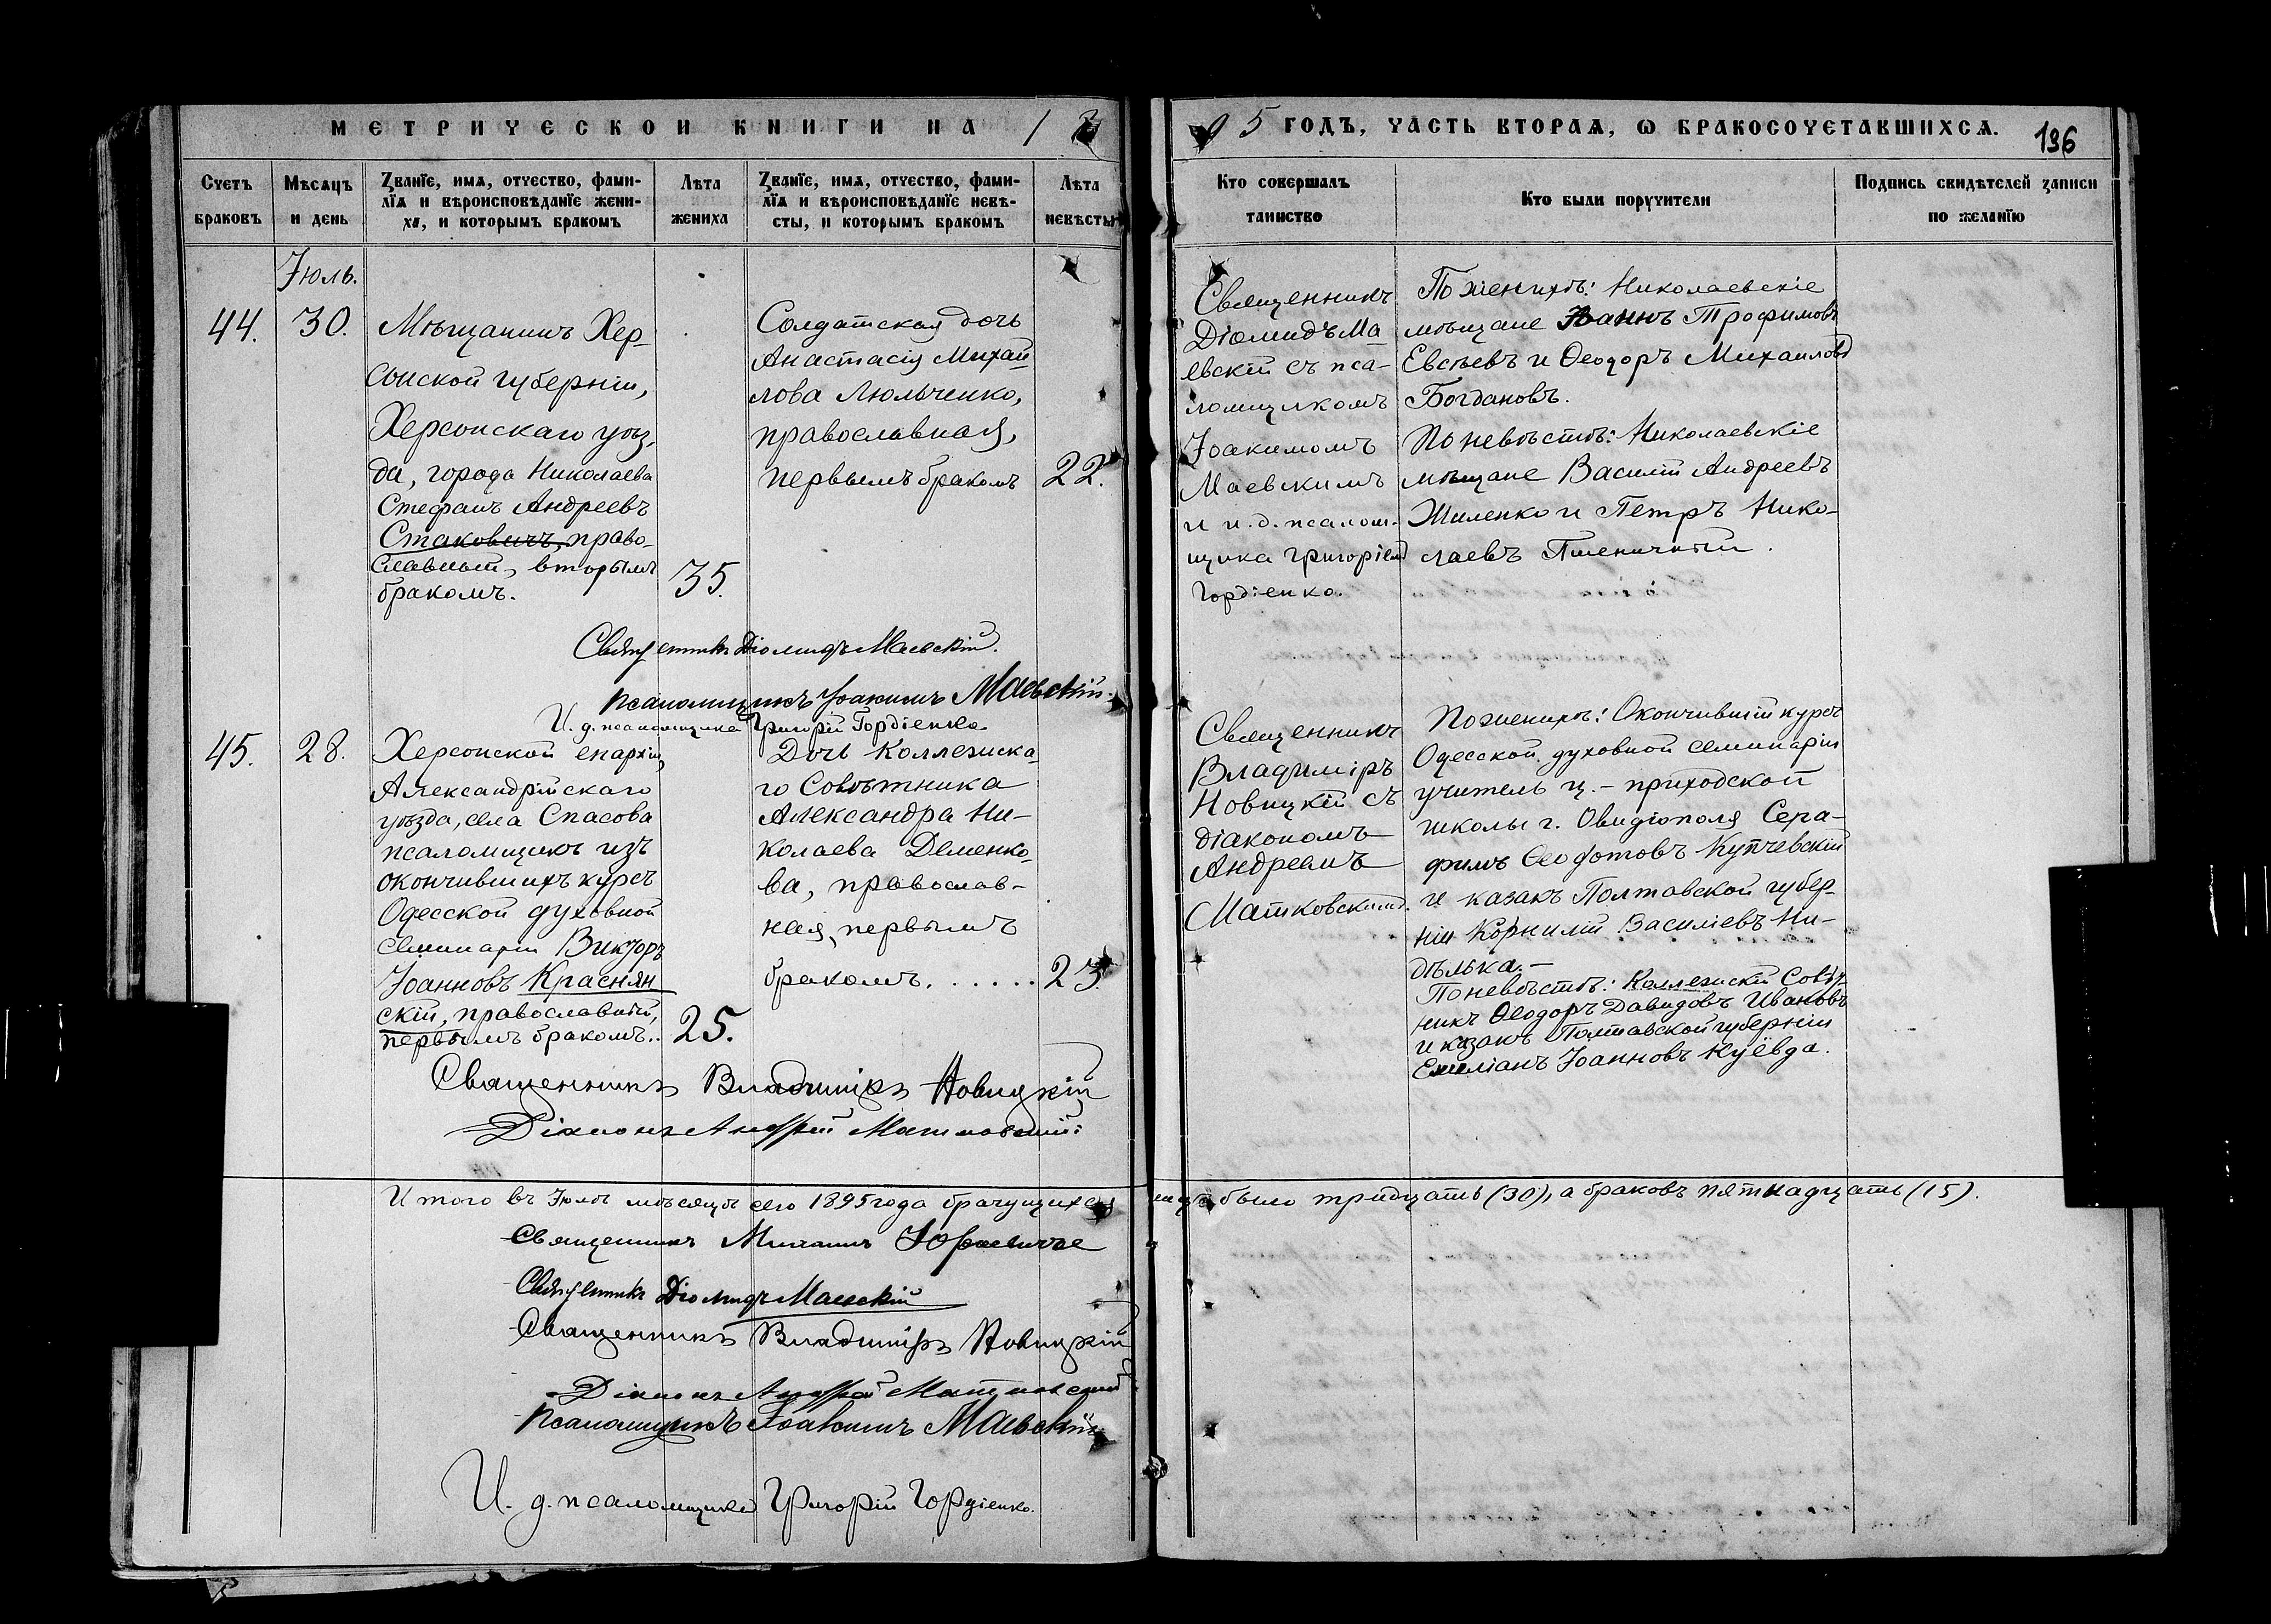 МЕТРИЧЕСКОЙ КНИГИ НА 18
95 ГОДЪ, ЧАСТЬ ВТОРАѦ, Ѡ БРАКОСОЧЕТАВШИХСѦ.
196
Счетъ браковъ
Мѣсѧцъ и день
Званїе, имѧ, отчество, фами-
лїѧ и вѣроисповѣданїе жени-
ха, и которымъ бракомъ
Лѣта жениха
Званїе, имѧ, отчество, фами-
лїѧ и вѣроисповѣданїе невѣ-
сты, и которымъ бракомъ
Лѣта невѣсты
Кто совершалъ
таинство
Кто были поручители
Подпись свидѣтелей записи
по желанїю
Іюль.
44.
30.
Мѣщанинъ Хер-
сонской губерніи,
Херсонскаго уѣз-
да, города Николаева
Стефанъ Андреевъ
Стаковичъ, право-
славный, вторымъ
бракомъ.
35.
Солдатская дочь
Анастасія Михай-
лова Люльченко,
православная,
первымъ бракомъ
22.
Священникъ
Діомидъ Ма-
евскій съ пса-
ломщикомъ
Іоакимомъ
Маевскимъ
и и.д. псалом-
щика Григоріемъ
Гордіенко.
По женихѣ: Николаевскіе
мѣщане Іоаннъ Трофимовъ
Евсѣевъ и Ѳеодоръ Михаиловъ
Богдановъ.
По невѣстѣ: Николаевскіе
мѣщане Василій Андреевъ
Жиленко и Петръ Нико-
лаевъ Пшеничный.
Священникъ Діомидъ Маевскій.
Псаломщикъ Іоакимъ Маевскій.
И. д. псаломщика Григорій Гордіенко.
45.
28.
Херсонской епархіи,
Александрійскаго
уѣзда, села Спасова
псаломщикъ изъ
окончившихъ курсъ
Одесской духовной
семинаріи Викторъ
Іоанновъ Краснян-
скій, православный,
первымъ бракомъ..
25.
Дочь Коллежска-
го Совѣтника
Александра Ни-
колаева Деменко-
ва, православ-
ная, первымъ
бракомъ......
23.
Священникъ
Владиміръ
Новицкій съ
діакономъ
Андреемъ
Матковскимъ.
По женихѣ: Окончившій курсъ
Одесской духовной семинаріи
учитель ц.-приходской
школы г. Овидіополя Сера-
фимъ Ѳеофотовъ Купчевскій
и казакъ Полтавской губер-
ніи Корнилій Василіевъ Ни-
дѣлька.—
По невѣстѣ: Коллежскій Совѣт-
никъ Ѳеодоръ Давидовъ Ивановъ
и казакъ Полтавской губерніи
Емеліанъ Іоанновъ Куёвда.
Священникъ Владиміръ Новицкій
Діаконъ Андрей Матковскій.
Итого въ Іюлѣ мѣсяцѣ сего 1895 года брачущихся лицъ было тридцать (30), а браковъ пятнадцать (15).
Священникъ Михаилъ Юркевичъ
Священникъ Діомидъ Маевскій
Священникъ Владиміръ Новицкій
Діаконъ Андрей Матковскій
Псаломщикъ Іоакимъ Маевскій.
И. д. псаломщика Григорій Гордіенко.